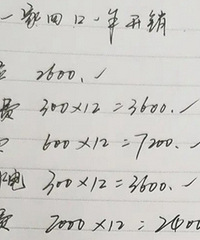 一家四口一年开销
2600.✓
费 300×12=3600.✓
600×12=7200.✓
电 300×12=3600.✓
费 2000×12=2400